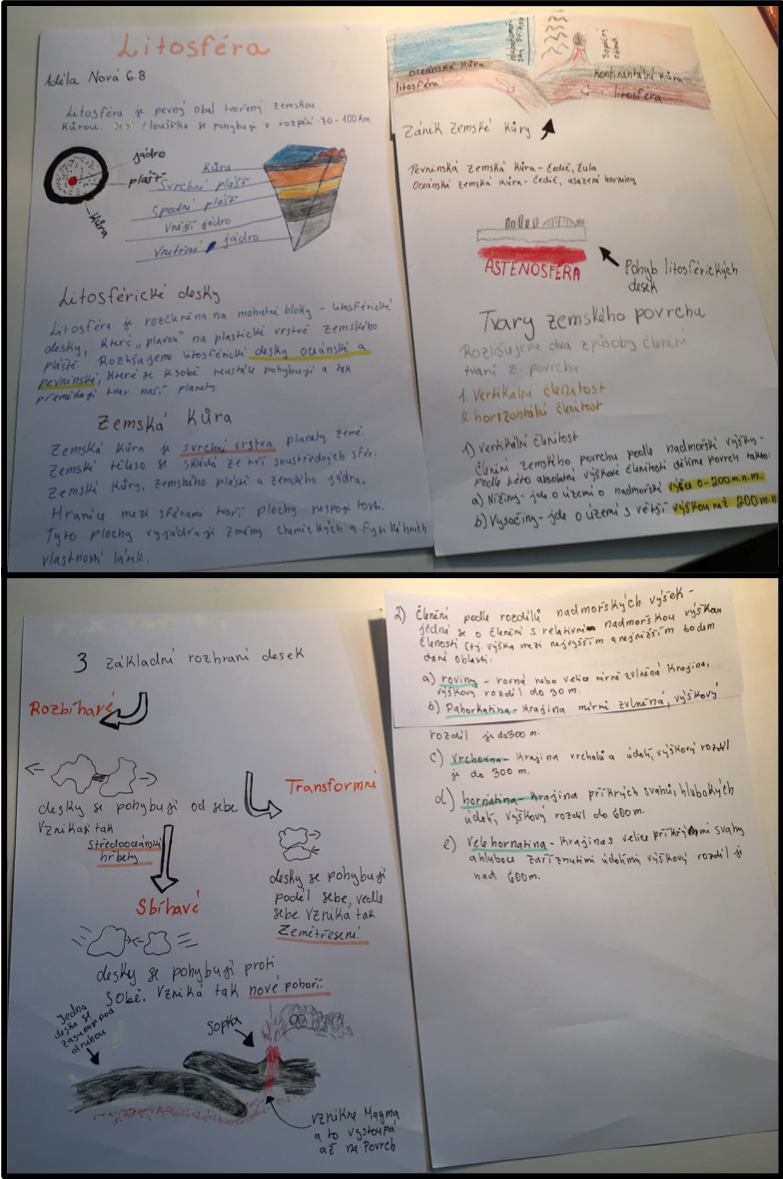 Litosféra
Adéla Nová 6.B
Litosféra je pevný obal tvořený zemskou
kůrou. Její tloušťka se pohybují v rozpětí 70-100km
jádro
plášť
kůra
Kůra
Svrchní plášť
Spodní plášť
Vnější jádro
Vnitřní jádro
Litosférické desky
Litosféra je rozčleněna na mohutné bloky - litosférické
desky, které „plavou" na plastické vrstvě zemského
pláště. Rozlišujeme litosférické desky oceánské a
pevninské, které se k sobě neustále pohybují a tak
přeměňují tvar naší planety.
Zemská kůra
Zemská kůra je svrchní vrstva planety země.
Zemské těleso se skládá ze tří soustředných sfér:
zemské kůry, zemského pláště a zemského jádra.
Hranice mezi sférami tvoří plochy nespojitosti.
Tyto plochy vyjadřují změny chemických a fyzikálních
vlastností látek.
Hlubokomoř
ský příkop
Sopečný
oceánská kůra
litosféra
kontinentální kůra
litosféra
Zánik zemské kůry
Pevninská zemská kůra - čedič, žula
Oceánská zemská kůra - čedič, usazené horniny
ASTENOSFÉRA
Pohyb litosférických
desek
Tvary zemského povrchu
Rozlišujeme dva způsoby členění
tvarů z. povrchu:
1. Vertikální členitost
2. horizontální členitost
1) Vertikální členitost
Členění zemského povrchu podle nadmořské výšky -
podle této absolutní výškové členitosti dělíme povrch takto:
a) Nížiny - jde o území o nadmořské výšce 0-200m.n.m.
b) Vysočiny - jde o území s větší výškou než 200m.n
3 základní rozhraní desek
Rozbíhavé
desky se pohybují od sebe
Vznikají tak
středooceánské
hřbety
Transformní
desky se pohybují
podél sebe, vedle
sebe vzniká tak
Zemětřesení.
Sbíhavé
desky se pohybují proti
sobě. Vzniká tak nové pohoří.
Jedna
deska se
zasunuje pod
druhou
Sopka
vznikne Magma
a to vystoupá
až na povrch
2) Členění podle rozdílů nadmořských výšek -
jedná se o členění s relativní nadmořskou výškou
členosti (tj. výška mezi nejvyšším a nejnižším bodem
dané oblasti.
a) roviny - rovná nebo velice mírně zvlněná krajina,
výškový rozdíl do 30m.
b) Pahorkatina - krajina mírně zvlněná, výškový
rozdíl je do 300m.
c) Vrchovina - krajina vrcholů a údolí, výškový rozdíl
je do 300m.
d) hornatina - krajina příkrých svahů, hlubokých
údolí, výškový rozdíl do 600m.
e) Velehornatina - krajina s velice příkrými svahy
a hluboce zaříznutými údolími, výškový rozdíl je
nad 600m.